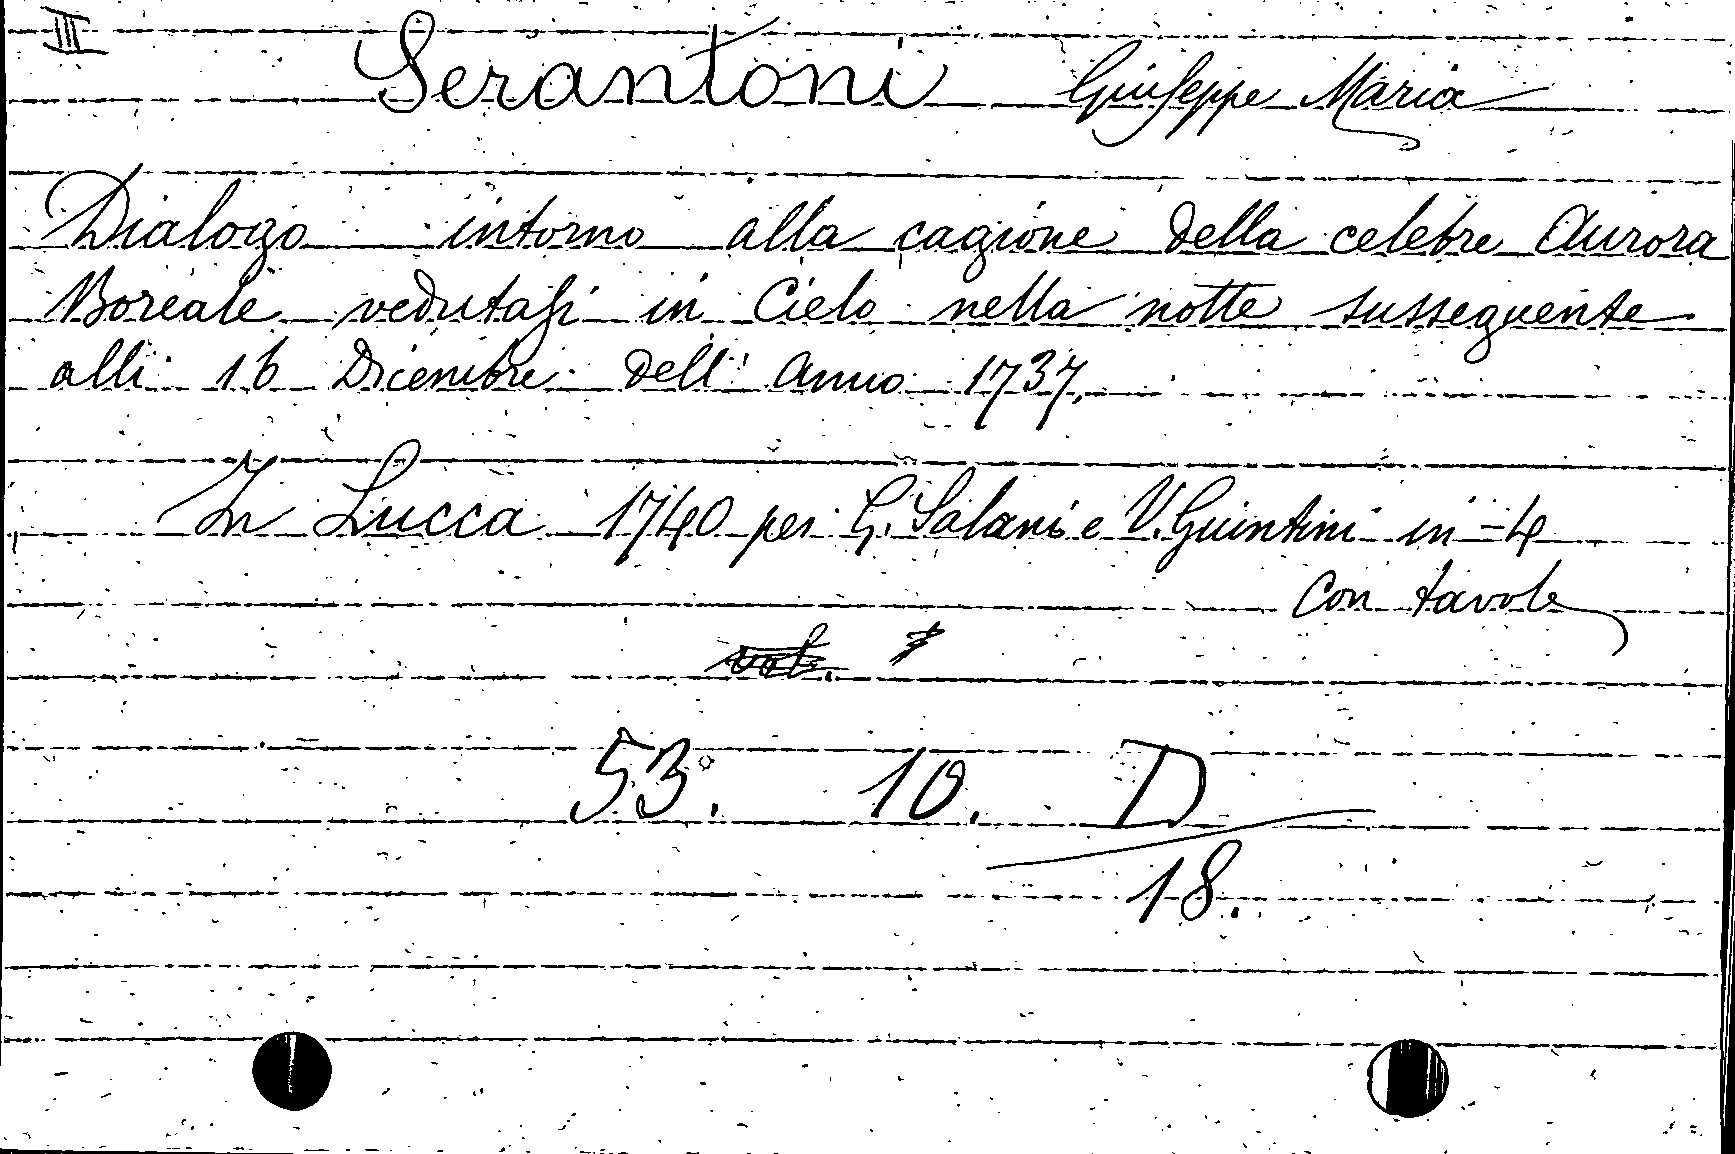 III
Serantoni Giuseppe Maria
Dialogo intorno alla cagione della celebre Aurora
Boreale vedutasi in Cielo nella notte susseguente
alli 16 Dicembre dell' Anno 1737,
In Lucca 1740 per G. Salani e V. Guintini in -4
Con tavole
vol.
53. 10. D
18.